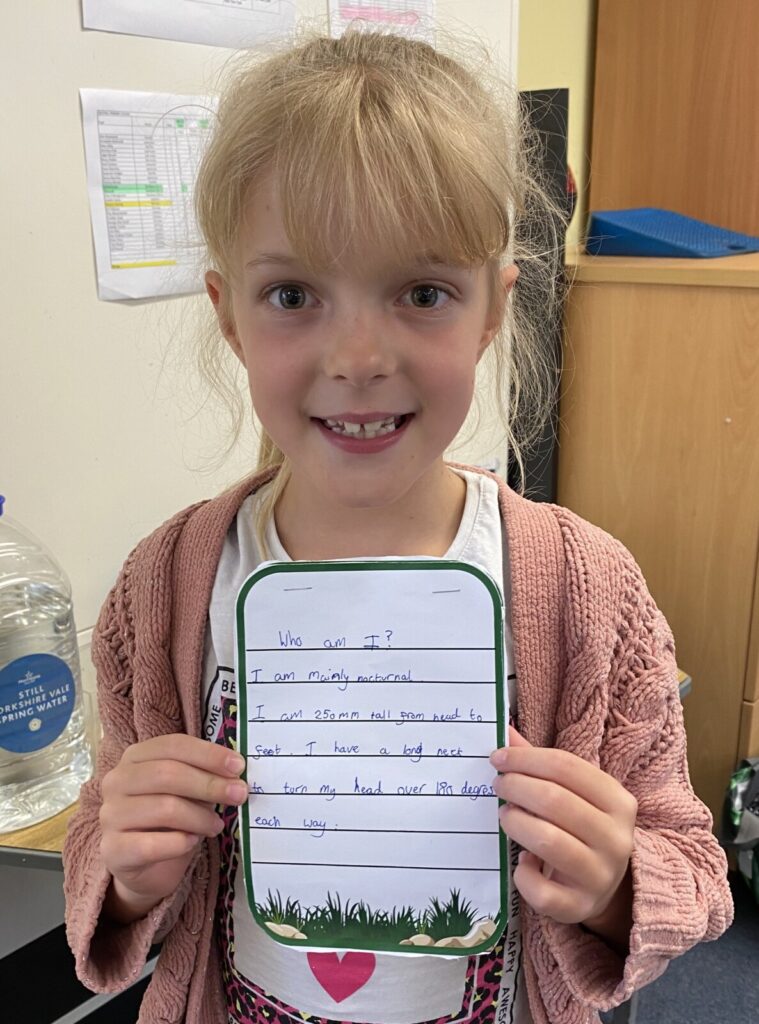 Who am I?
I am mainly nocturnal.
I am 250mm tall from head to
feet. I have a long neck
to turn my head over 180 degrees
each way.
STILL
YORKSHIRE VALE
SPRING WATER
HAPPY